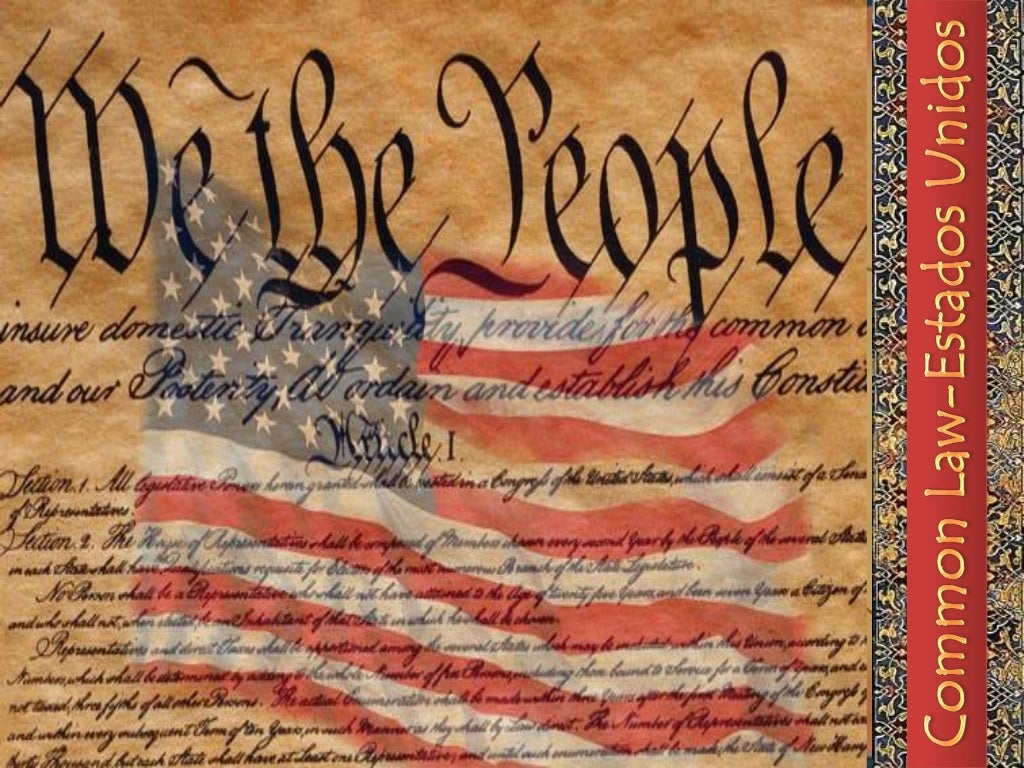 We the People
insure domestic Tranquility, provide for the common
and our Posterity, do ordain and establish this Constit
Article. I.
Section. 1. All legislative Powers herein granted shall be vested in a Congress of the United States, which shall consist of a Sena
of Representatives
Section. 2. The House of Representatives shall be composed of Members chosen every second Year by the People of the several States
in each State shall have Qualifications requisite for Electors of the most numerous Branch of the State Legislature.
No Person shall be a Representative who shall not have attained to the Age of twenty five Years, and been seven Years a Citizen of
and who shall not, when elected, be an Inhabitant of that State in which he shall be chosen.
Representatives and direct Taxes shall be apportioned among the several States which may be included within this Union, according to
Numbers, which shall be determined by adding to the whole Number of free Persons, including those bound to Service for a Term of Years, and
not taxed, three fifths of all other Persons. The actual Enumeration shall be made within three Years after the first Meeting of the Congress
and within every subsequent Term of ten Years, in such Manner as they shall by Law direct. The Number of Representatives shall not
thirty Thousand, but each State shall have at Least one Representative; and until such enumeration shall be made, the State of New Ham
Common Law-Estados Unidos